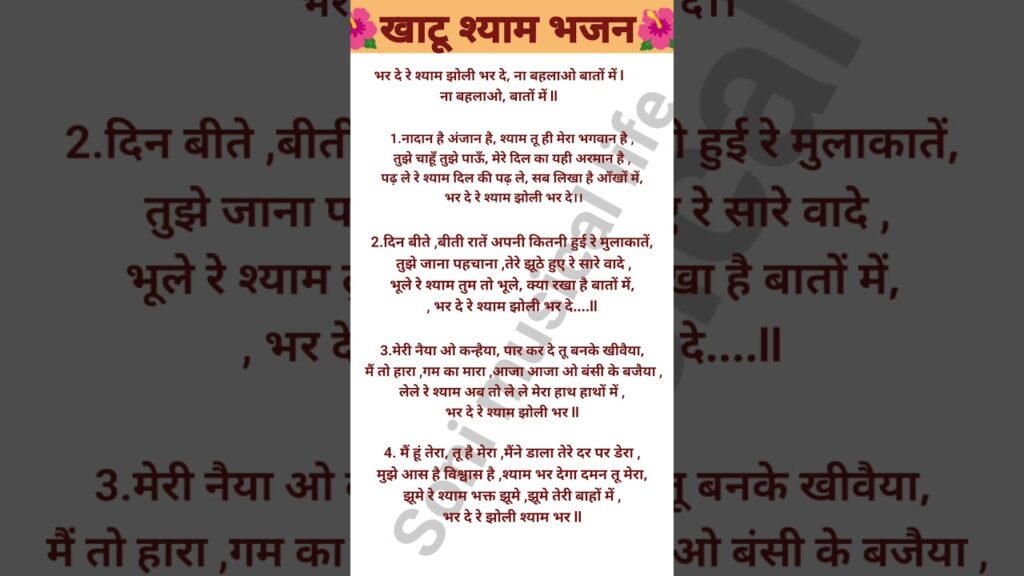 खाटू श्याम भजन
भर दे रे श्याम झोली भर दे, ना बहलाओ बातों में l
ना बहलाओ, बातों में ll
1.नादान है अंजान है, श्याम तू ही मेरा भगवान है ,
तुझे चाहूँ तुझे पाऊँ, मेरे दिल का यही अरमान है ,
पढ़ ले रे श्याम दिल की पढ़ ले, सब लिखा है आँखों में,
भर दे रे श्याम झोली भर दे।।
2.दिन बीते ,बीती रातें अपनी कितनी हुई रे मुलाकातें,
तुझे जाना पहचाना ,तेरे झूठे हुए रे सारे वादे ,
भूले रे श्याम तुम तो भूले, क्या रखा है बातों में,
, भर दे रे श्याम झोली भर दे....ll
3.मेरी नैया ओ कन्हैया, पार कर दे तू बनके खीवैया,
मैं तो हारा ,गम का मारा ,आजा आजा ओ बंसी के बजैया ,
लेले रे श्याम अब तो ले ले मेरा हाथ हाथों में ,
भर दे रे श्याम झोली भर ll
4. मैं हूं तेरा, तू है मेरा ,मैंने डाला तेरे दर पर डेरा ,
मुझे आस है विश्वास है ,श्याम भर देगा दमन तू मेरा,
झूमे रे श्याम भक्त झूमे ,झूमे तेरी बाहों में ,
भर दे रे झोली श्याम भर ll
Soni musical life
2.दिन बीते ,बीती
हुई रे मुलाकातें,
तुझे जाना
रे सारे वादे ,
भूले रे श्याम
है बातों में,
, भर दे
दे....ll
3.मेरी नैया ओ
तू बनके खीवैया,
मैं तो हारा ,गम का
ओ बंसी के बजैया ,